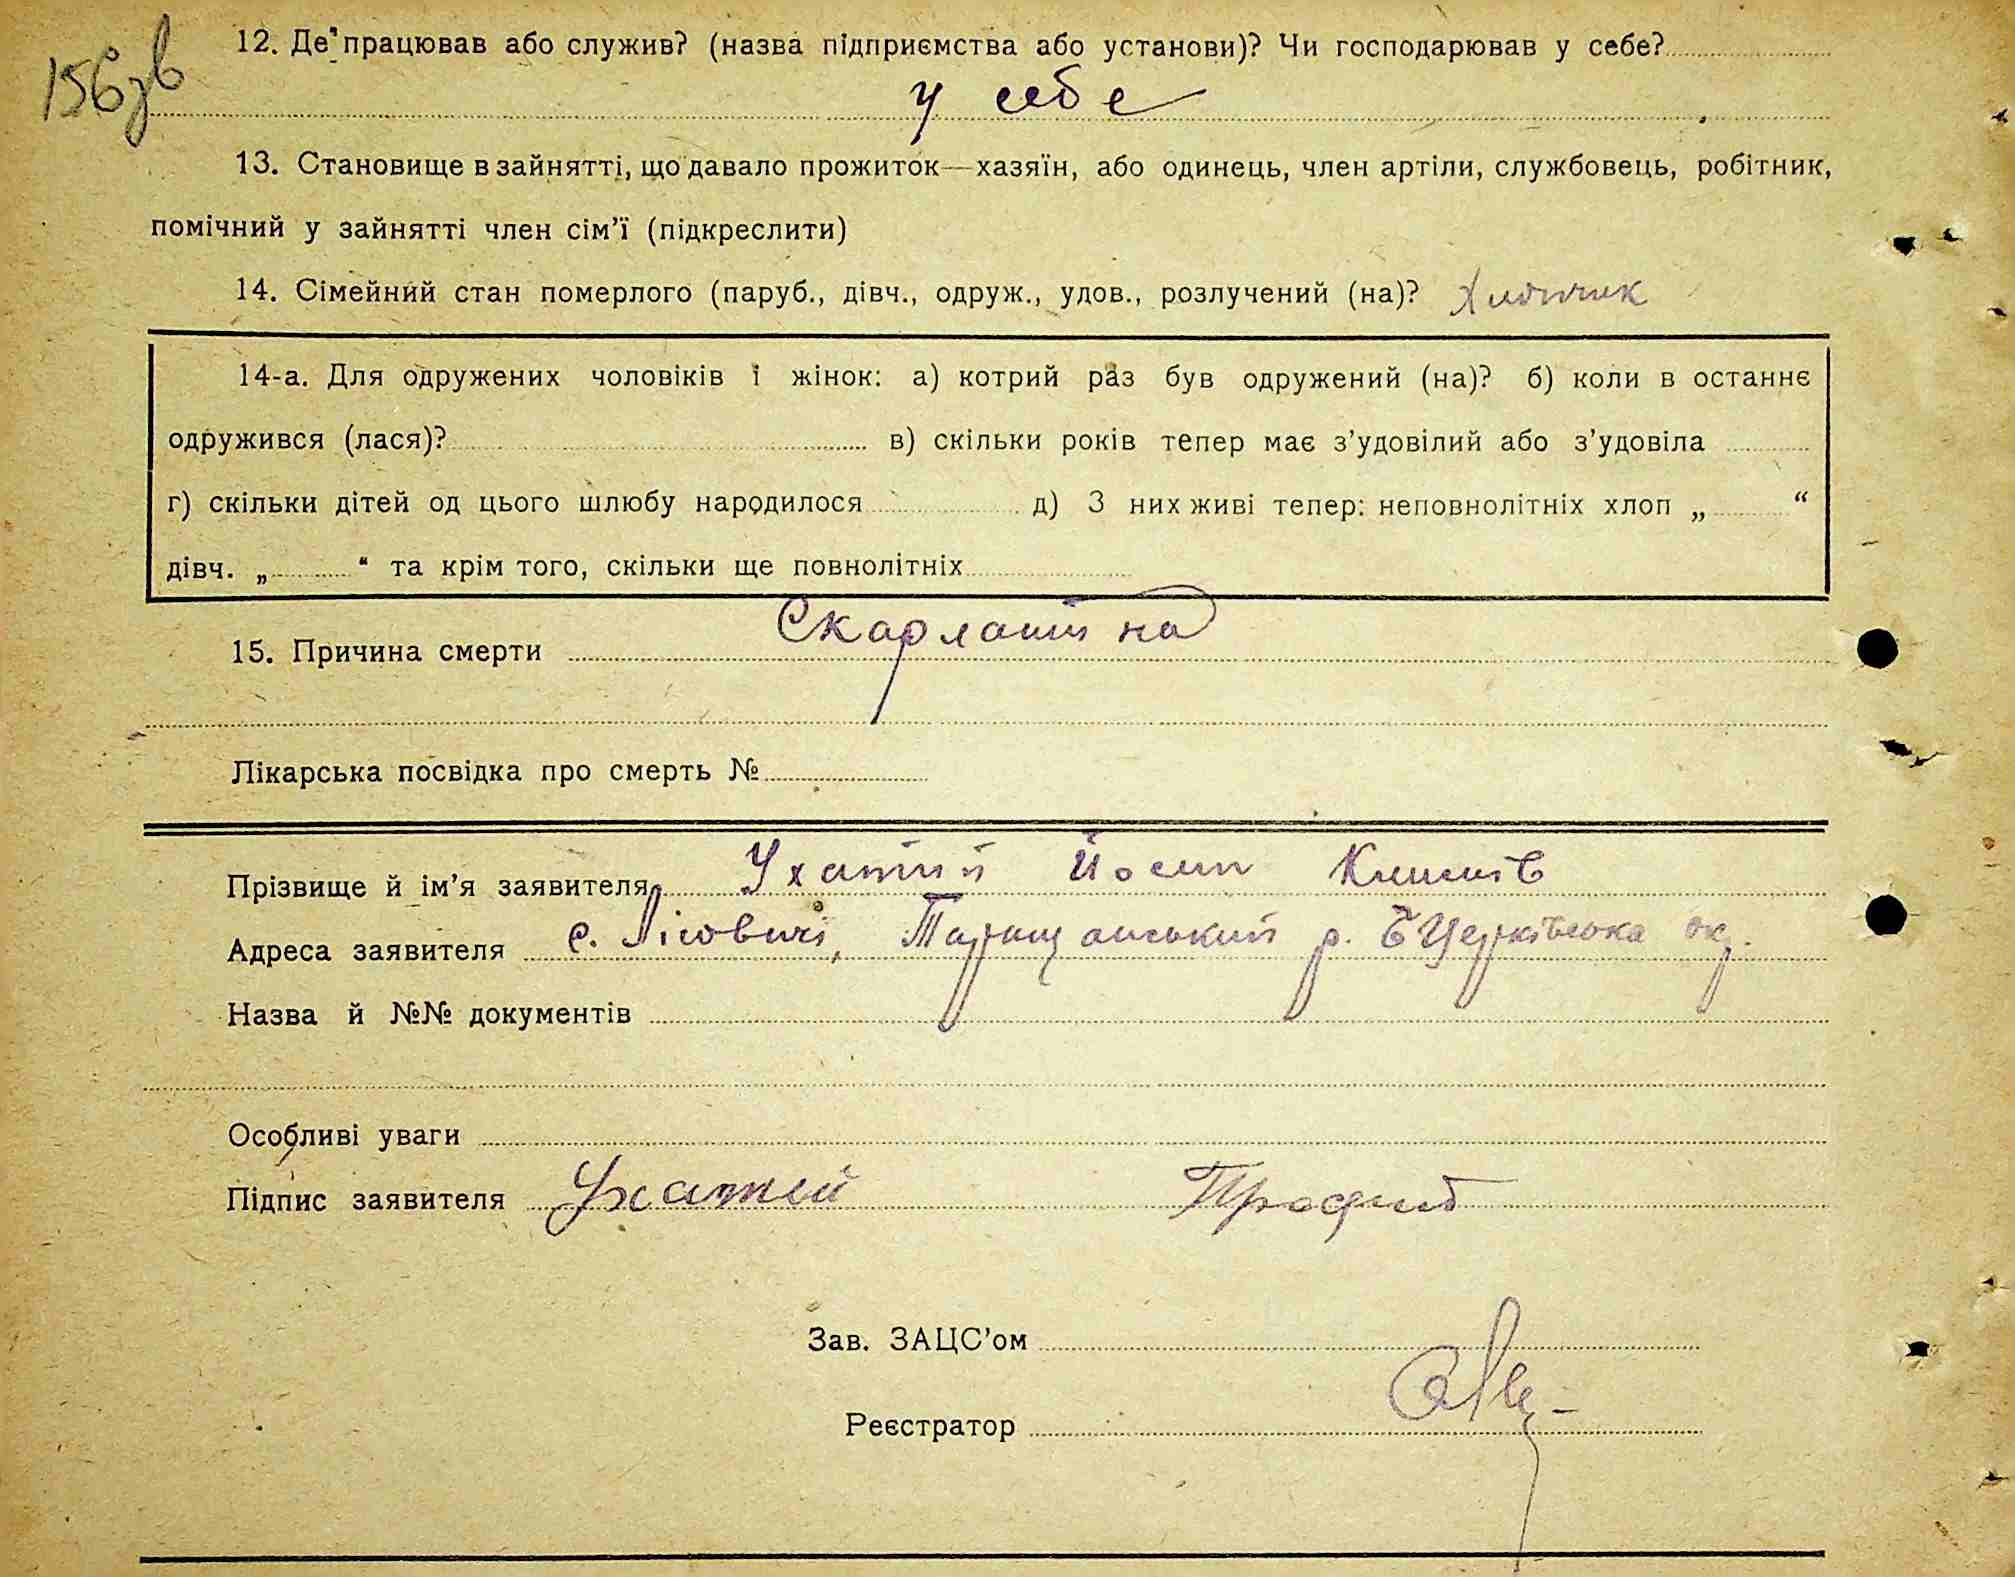 156зв
12. Де працював або служив? (назва підприємства або установи)? Чи господарював у себе?
у себе
13. Становище в зайнятті, що давало прожиток—хазяїн, або одинець, член артіли, службовець, робітник,
помічний у зайнятті член сім’ї (підкреслити)
14. Сімейний стан померлого (паруб., дівч., одруж., удов., розлучений (на)? Хлопчик
14-а. Для одружених чоловіків і жінок: а) котрий раз був одружений (на)? б) коли в останнє
одружився (лася)? в) скільки років тепер має з’удовілий або з’удовіла
г) скільки дітей од цього шлюбу народилося д) З них живі тепер: неповнолітніх хлоп „ “
дівч. „ “ та крім того, скільки ще повнолітніх
15. Причина смерти Скарлатина
Лікарська посвідка про смерть №
Прізвище й ім’я заявителя Ухатий Йосип Климів
Адреса заявителя с. Лісовичі, Таращанський р. БЦерківська ок.
Назва й №№ документів
Особливі уваги
Підпис заявителя Ухатий
Зав. ЗАЦС’ом
Реєстратор